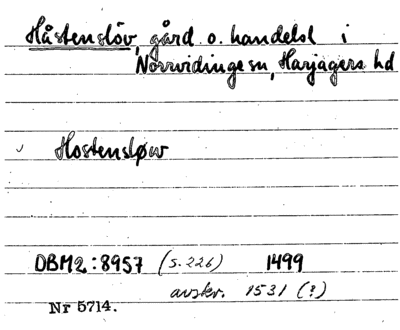 Håstenslöv, gård o. handelsl i
Norrvidinge sn, Harjagers hd
Hostensløw
DBM2:8957 (s. 226) 1499
avskr. 1531 (?)
Nr 5714.